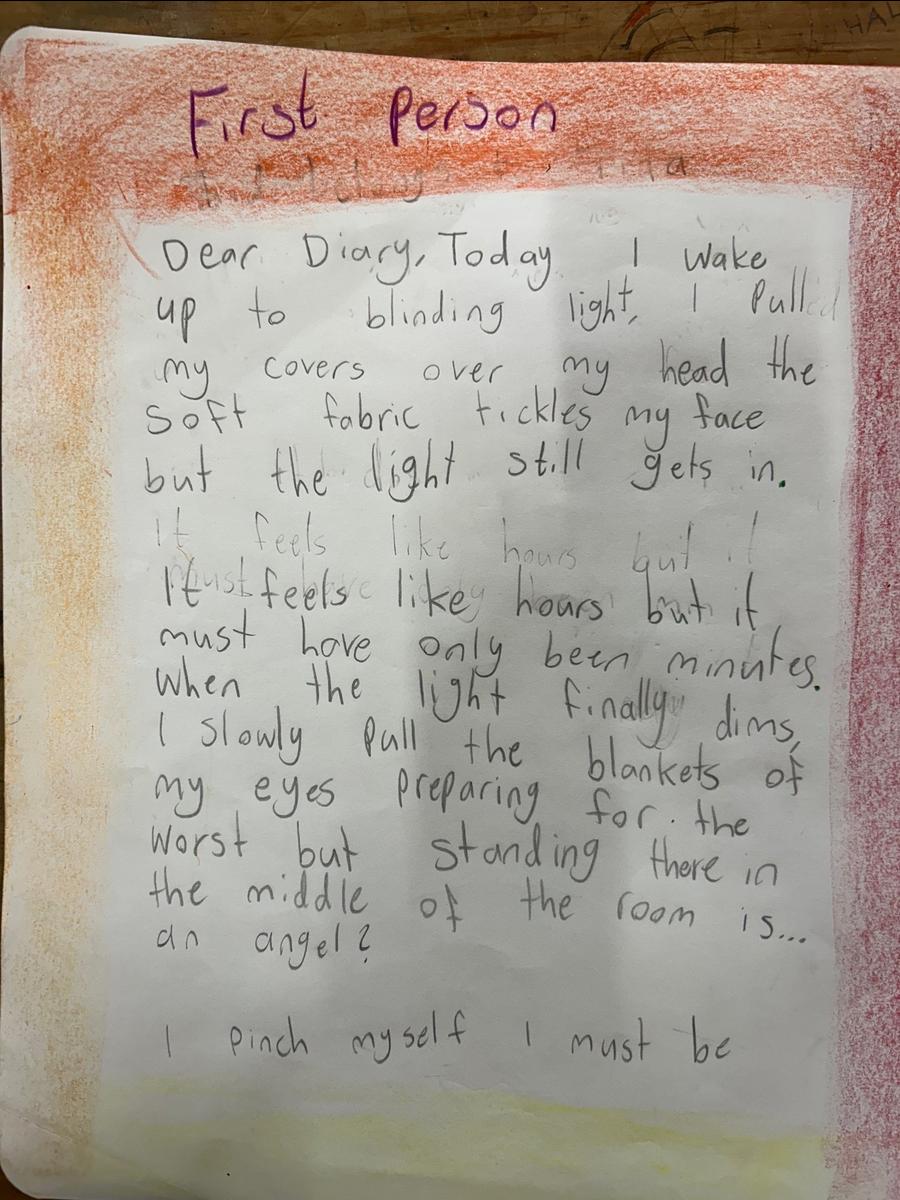 First person
Dear Diary, Today I wake
up to blinding light, I Pull
my covers over my head the
soft fabric tickles my face
but the light still gets in.
It feels like hours but it
It feels like hours but it
must have only been minutes.
When the light finally dims,
I slowly pull the blankets of
my eyes preparing for the
worst but standing there in
the middle of the room is...
an angel?
I pinch myself I must be